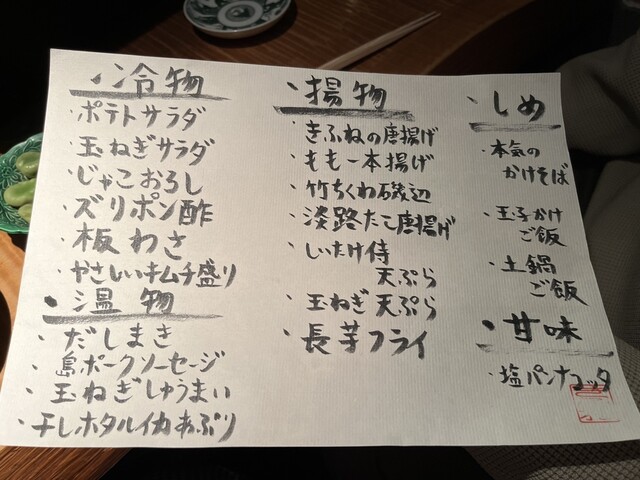 ・冷物
・ポテトサラダ
・玉ねぎサラダ
・じゃこおろし
・ズリポン酢
・板わさ
・やさしいキムチ盛り
・温物
・だしまき
・島ポークソーセージ
・玉ねぎしゅうまい
・干しホタルイカあぶり
・揚物
・きふねの唐揚げ
・もも一本揚げ
・竹ちくわ磯辺
・淡路たこ唐揚げ
・しいたけ侍
天ぷら
・玉ねぎ天ぷら
・長芋フライ
・しめ
・本気の
かけそば
・玉子かけ
ご飯
・土鍋
ご飯
・甘味
・塩パンナコッタ